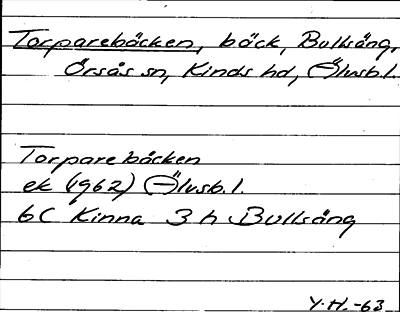 Torparebäcken, bäck, Bullsäng,
Örsås sn, Kinds hd, Älvsb. l.
Torparebäcken
ek (1962) Älvsb. l.
6C Kinna 3 h Bullsäng
Y.H.-63